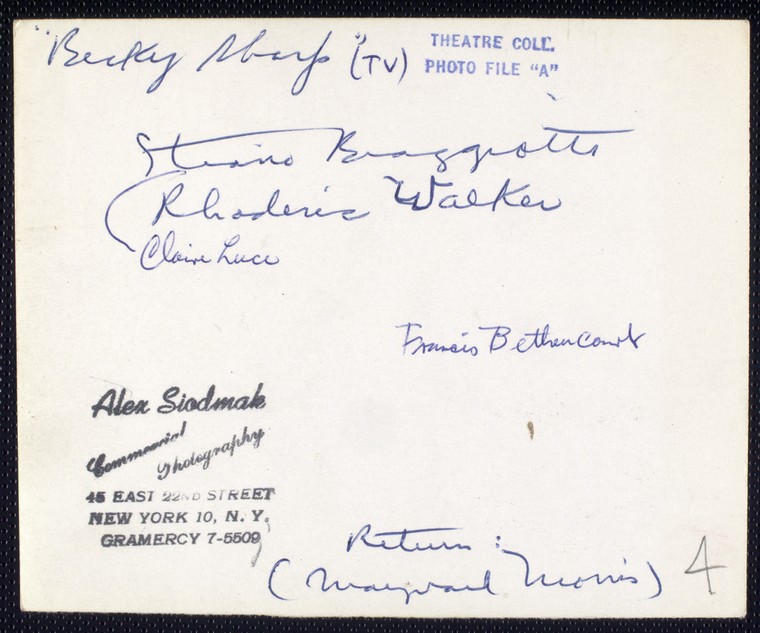 "Becky Sharp" (TV)
THEATRE COLL.
PHOTO FILE "A"
Stiano Braggiotti
Rhoderic Walker
Claire Luce
Francis Bethencourt
Alex Siodmak
Commercial
Photography
45 EAST 22ND STREET
NEW YORK 10, N. Y.
GRAMERCY 7-5509
Return :
(Maynard Morris)
4